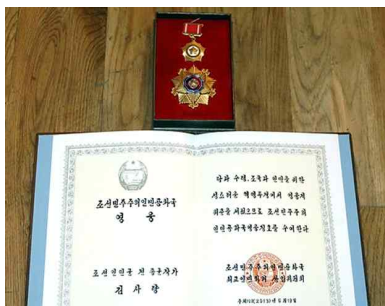 조선민주주의인민공화국
영웅
조선인민군 전 종군작가
김사량
당과 수령, 조국과 인민을 위한
성스러운 혁명투쟁에서 영웅적
위훈을 세웠으므로 조선민주주의
인민공화국영웅칭호를 수여한다.
조선민주주의인민공화국
최고인민회의 상임위원회